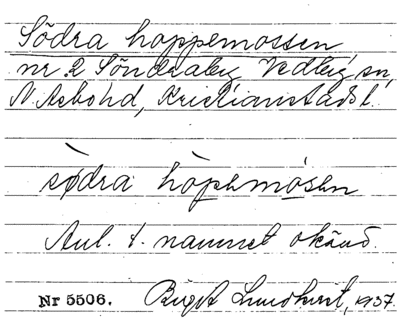 Södra hoppemossen,
nr 2 Söndraby Vedby sn,
N. Åsbo hd, Kristianstads l.
sødra hòpemósen
Anl. t. namnet okänd.
Nr 5506. Birgit Lundkvist, 1937.